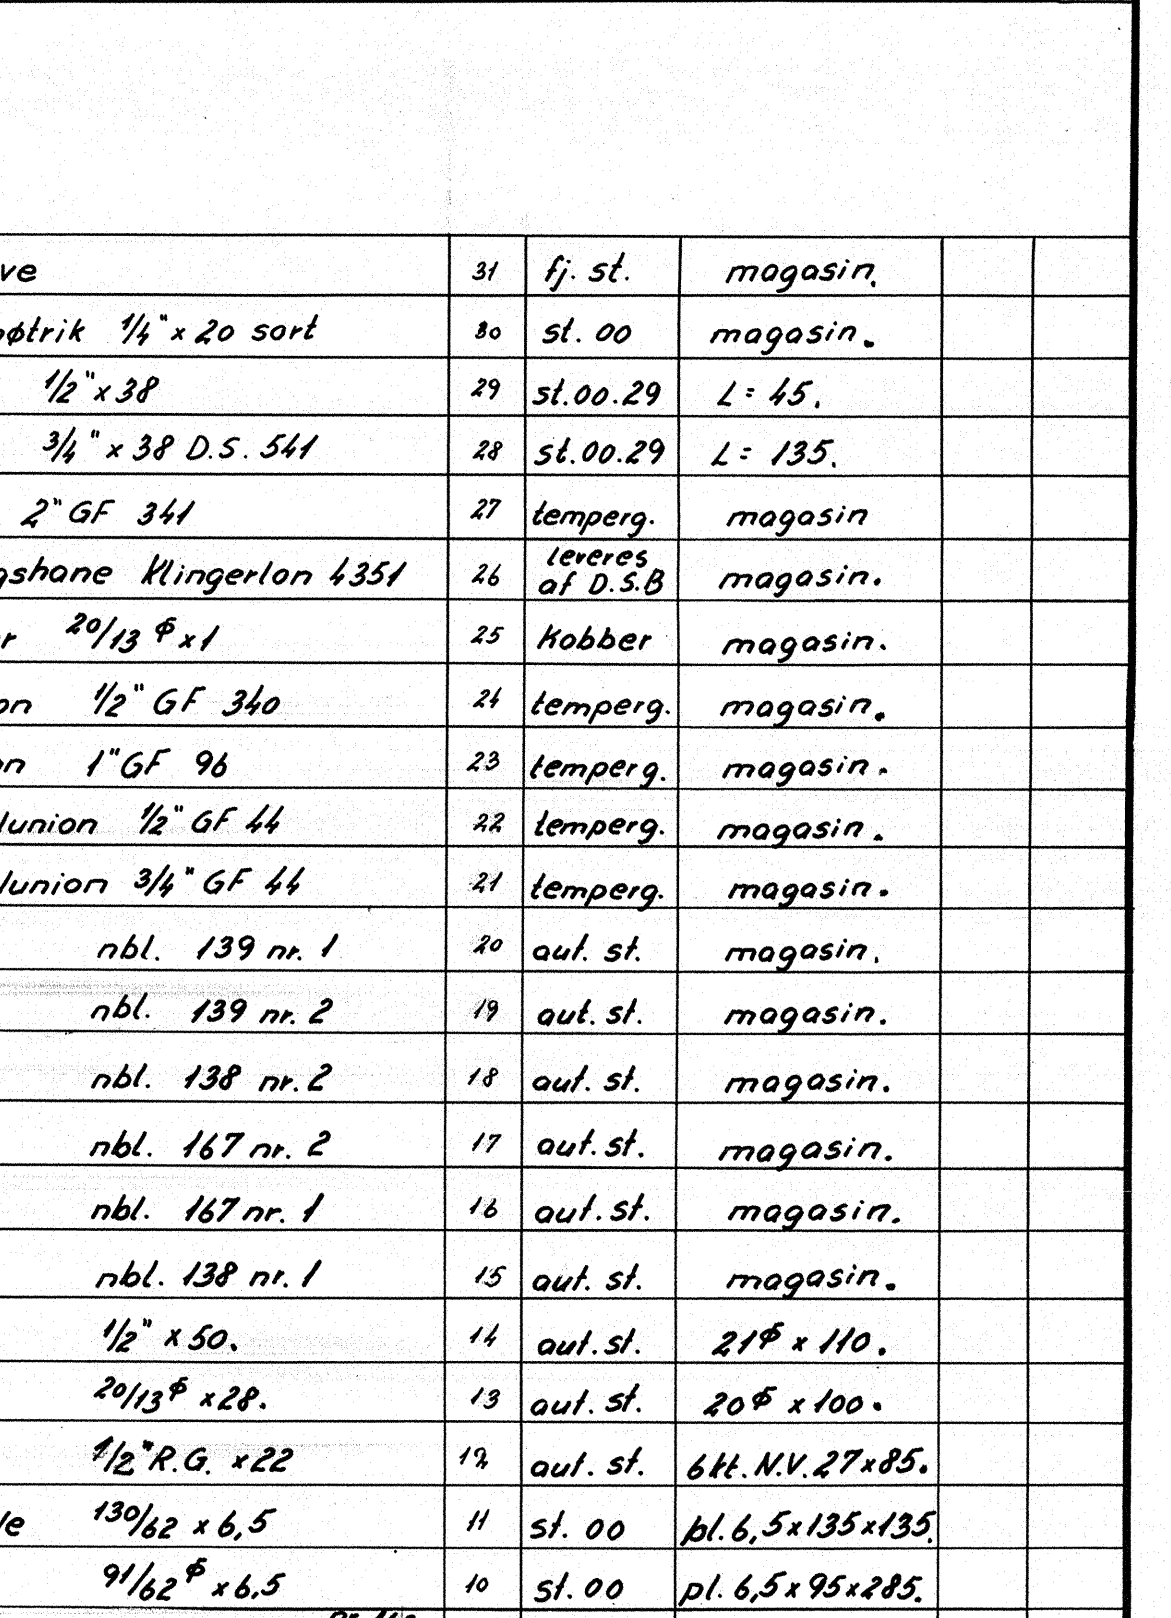 ve 31 fj. st. magasin.
øtrik 1/4" x 20 sort 30 st. 00 magasin.
1/2" x 38 29 st.00.29 L = 45.
3/4" x 38 D.S. 541 28 st.00.29 L = 135.
2" GF 341 27 temperg. magasin
leveres
gshane Klingerlon 4351 26 af D.S.B magasin.
r 20/13 φ x 1 25 Kobber magasin.
on 1/2" GF 340 24 temperg. magasin.
on 1" GF 96 23 temperg. magasin.
lunion 1/2" GF 44 22 temperg. magasin.
lunion 3/4" GF 44 21 temperg. magasin.
nbl. 139 nr. 1 20 aut. st. magasin.
nbl. 139 nr. 2 19 aut. st. magasin.
nbl. 138 nr. 2 18 aut. st. magasin.
nbl. 167 nr. 2 17 aut. st. magasin.
nbl. 167 nr. 1 16 aut. st. magasin.
nbl. 138 nr. 1 15 aut. st. magasin.
1/2" x 50. 14 aut. st. 21φ x 110.
20/13φ x 28. 13 aut. st. 20φ x 100.
1/2" R.G. x 22 12 aut. st. 6kt. N.V. 27x85.
130/62 x 6,5 11 st. 00 pl. 6,5x135x135.
91/62φ x 6.5 10 st. 00 pl. 6,5x95x285.